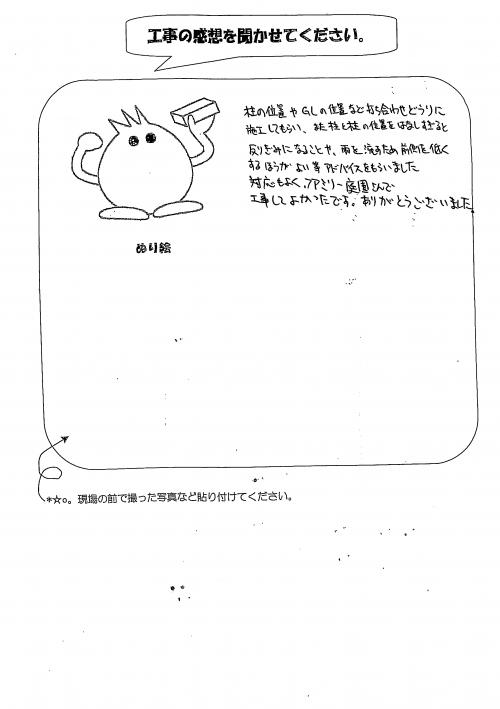 工事の感想を聞かせてください。
柱の位置やGLの位置など打ち合わせどうりに
施工してもらい、また柱と柱の位置をはなしすぎると
反りぎみになることや、雨を流すため前側を低く
するほうがよい等アドバイスをもらいました
対応もよく、ファミリー庭園さんで
工事してよかったです。ありがとうございました
ぬり絵
*☆○。現場の前で撮った写真など貼り付けてください。